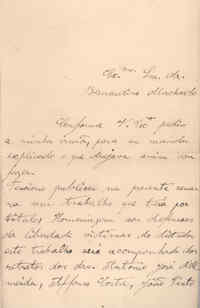 Ex.mo Snr. Dr.
Bernardino Machado
Conforme V. Ex.a pediu
a minha visita, para eu mandar
explicado o que desejava assim vou
fazer.
Tenciono publicar na presente sema-
na um trabalho que tera por
titulo Homenagem aos defensores
da liberdade victimas da ditadura
este trabalho será acompanhado dos
retratos dos drs. Antonio José d'Al-
meida, Affonso Costa, João Pinto